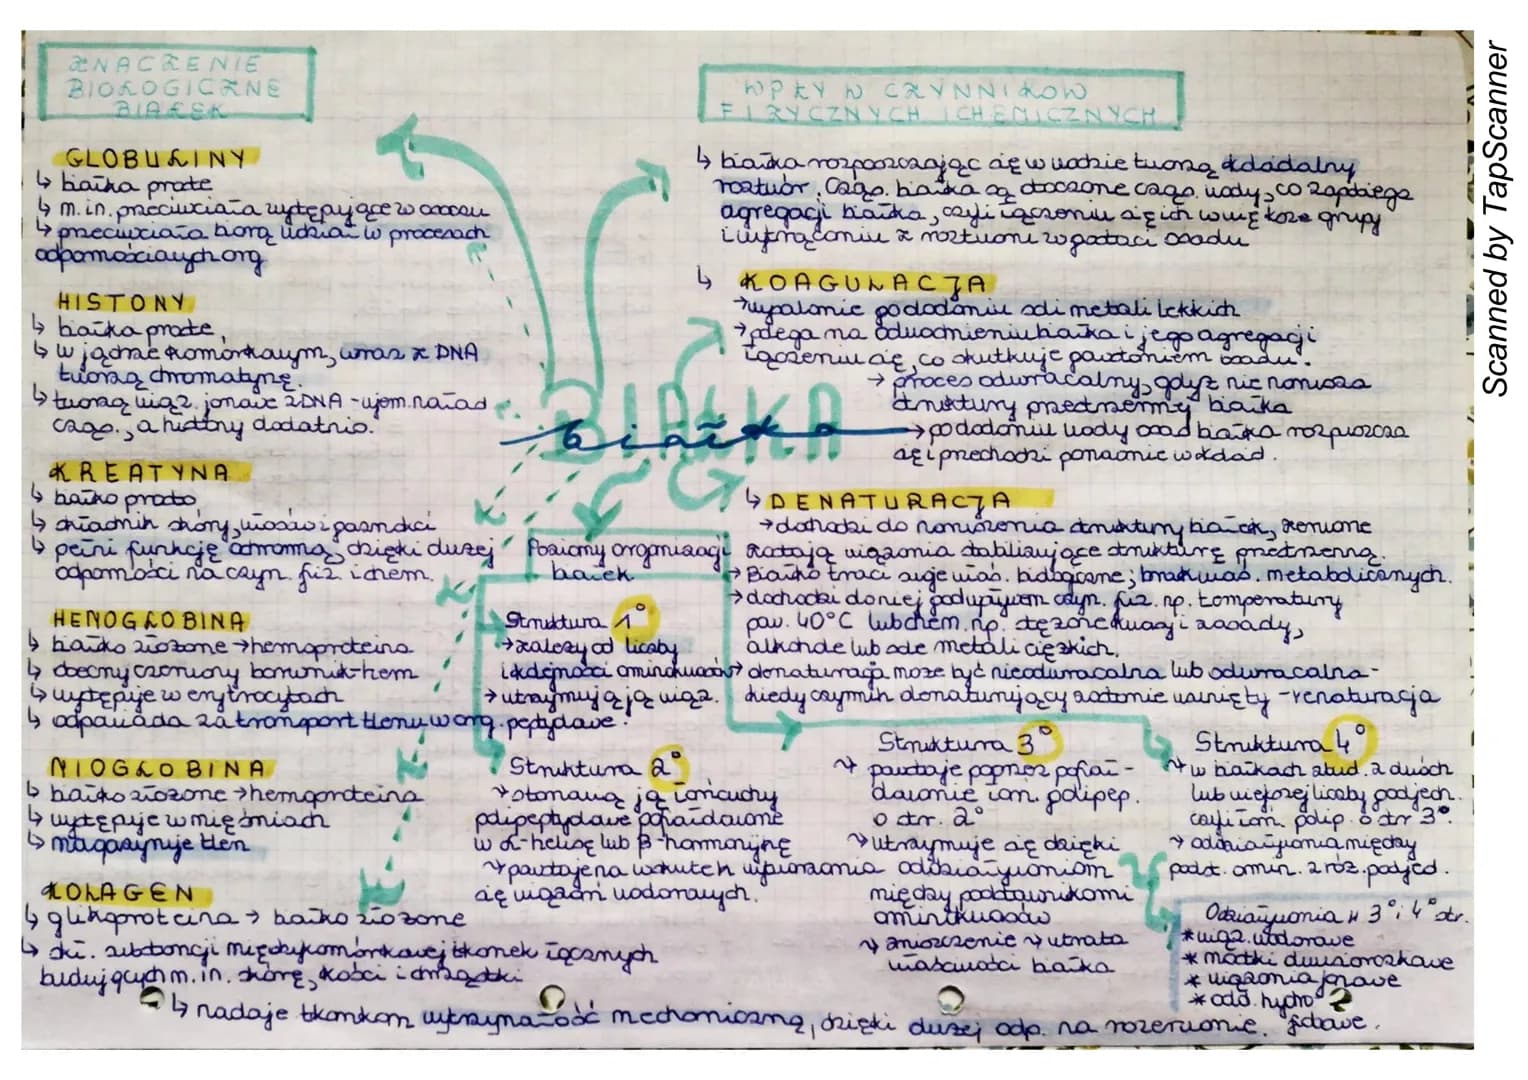 ZNACZENIE
BIOLOGICZNE
BIAŁEK
GLOBULINY
↳ białka proste
↳ m.in. przeciwciała występujące w osoczu
↳ przeciwciała biorą udział w procesach
odpornościowych org
HISTONY
↳ białka proste,
↳ w jądrze komórkowym, wraz z DNA
tworzą chromatynę.
↳ tworzą wiąz. jonowe z DNA - ujem. naład
cząs., a histony dodatnio.
KREATYNA
↳ białko prosto
↳ składnik skóry, włosów i paznokci
↳ pełni funkcję ochronną, dzięki dużej
odporności na czyn. fiz i chem.
HEMOGLOBINA
↳ białko złożone → hemoproteina
↳ obecny czerwony barwnik - hem
↳ występuje w erytrocytach
↳ odpowiada za transport tlenu w org.
MIOGLOBINA
↳ białko złożone → hemoproteina
↳ występuje w mięśniach
↳ magazynuje tlen
KOLAGEN
↳ glikoproteina → białko złożone
↳ skł. substancji międzykomórkowej tkanek łącznych
budujących m.in. skórę, kości i chrząstki
↳ nadaje tkankom wytrzymałość mechaniczną, dzięki dużej odp. na rozerwanie.
BIAŁKA
białka
WPŁYW CZYNNIKÓW
FIZYCZNYCH I CHEMICZNYCH
↳ białka rozpuszczając się w wodzie tworzą koloidalny
roztwór. Cząs. białka są otoczone cząs. wody, co zapobiega
agregacji białka, czyli łączeniu się ich w większe grupy
i wytrącaniu z roztworu w postaci osadu
↳ KOAGULACJA
→ wysalanie po dodaniu soli metali lekkich
→ polega na odwodnieniu białka i jego agregacji
łączeniu się, co skutkuje powstaniem osadu.
→ proces odwracalny, gdyż nie narusza
struktury przestrzennej białka
→ po dodaniu wody osad białka rozpuszcza
się i przechodzi ponownie w koloid.
↳ DENATURACJA
→ dochodzi do naruszenia struktury białek, zerwane
zostają wiązania stabilizujące strukturę przestrzenną.
→ Białko traci swoje właś. biologiczne; brak właś. metabolicznych.
→ dochodzi do niej pod wpływem czyn. fiz. np. temperatury
pow. 40°C lub chem. np. stężone kwasy i zasady,
alkohole lub sole metali ciężkich.
→ denaturacja może być nieodwracalna lub odwracalna -
kiedy czynnik denaturujący zostanie usunięty - renaturacja
Poziomy organizacji
białek
Struktura 1°
→ zależy od liczby
i kolejności aminokwasów
→ utrzymują ją wiąz.
peptydowe.
Struktura 2°
→ stanowią ją łańcuchy
polipeptydowe pofałdowane
w α-helisę lub β-harmonijkę
→ powstaje na skutek wytwarzania
się wiązań wodorowych.
Struktura 3°
→ powstaje poprzez pofał-
dowanie łań. polipep.
o str. 2°
→ utrzymuje się dzięki
oddziaływaniom
między podstawnikami
aminokwasów
→ zniszczenie → utrata
właściwości białka
Struktura 4°
→ w białkach zbud. z dwóch
lub większej liczby podjedn.
czyli łań. polip. o str 3°.
→ oddziaływania między
podst. amin. z róż. podjed.
Odziaływania w 3° i 4° str.
* wiąz. wodorowe
* mostki dwusiarczkowe
* wiązania jonowe
* odd. hydro
fobowe.
Scanned by TapScanner